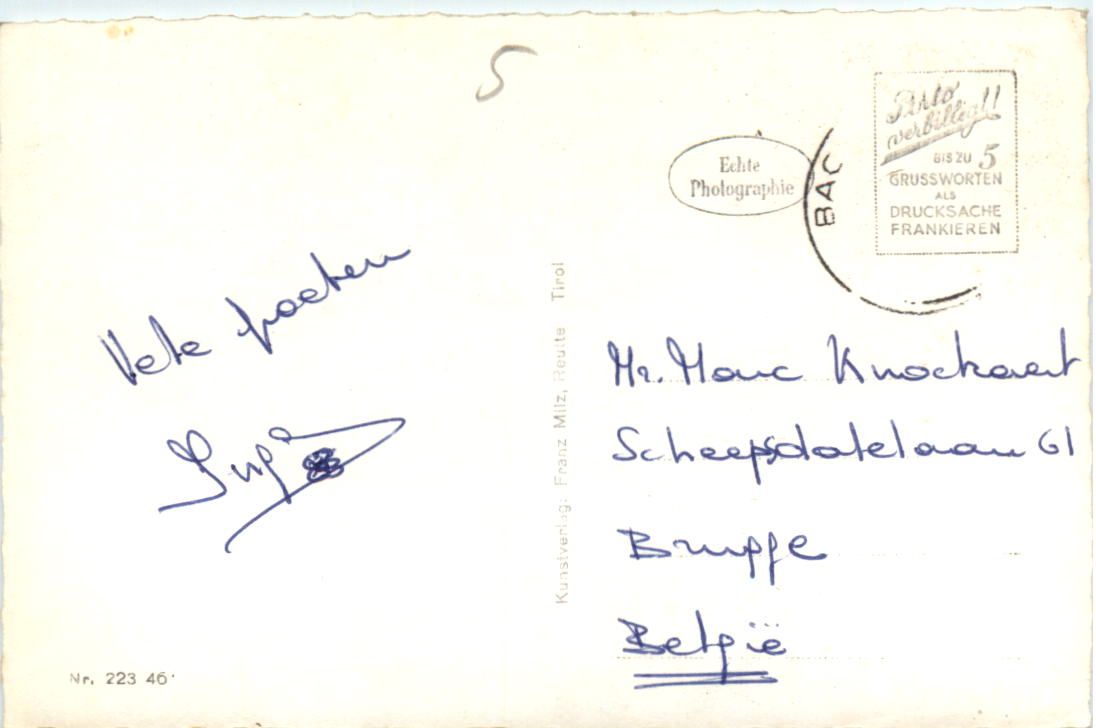 5
Echte
Photographie
BAC
Porto
verbilligt!!
BIS ZU 5
GRUSSWORTEN
ALS
DRUCKSACHE
FRANKIEREN
Vele groeten
Kunstverlag: Franz Milz, Reutte Tirol
Mr. Marc Knockaert
Scheepsdalelaan 61
Brugge
België
Nr. 223 46